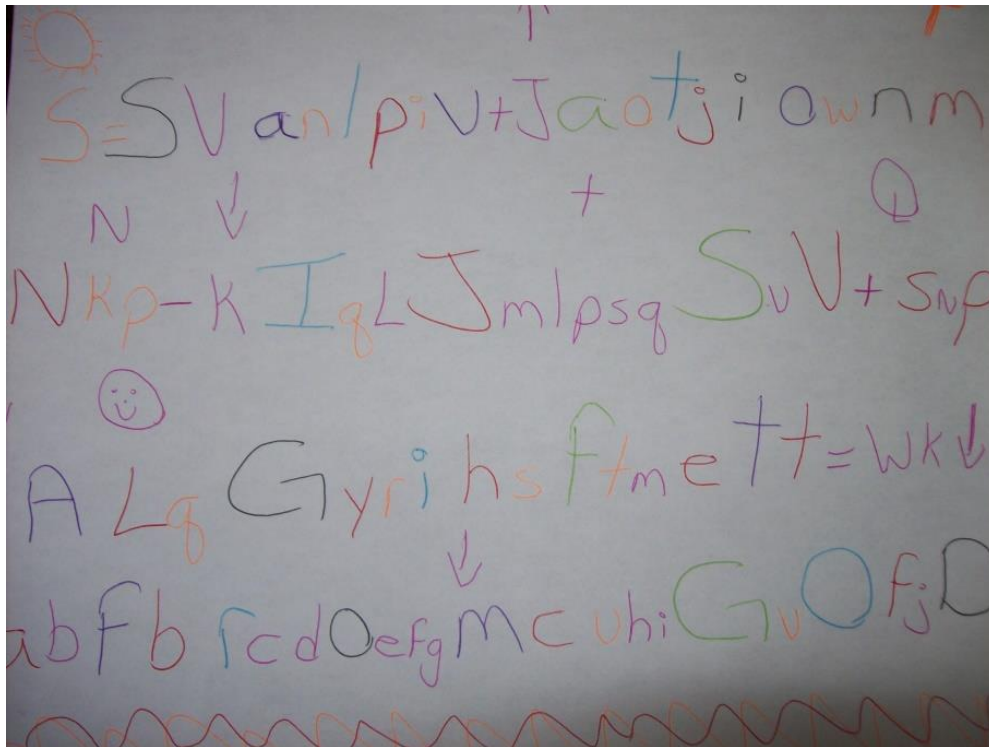 S=SVanlpiv+Jaotjiownm
N + Q
NKp-KIqLJmlpsqSvV+sNp
ALqGyrihsftmett=WK↓
abFbrcdOefgMcuhiGvOfjD